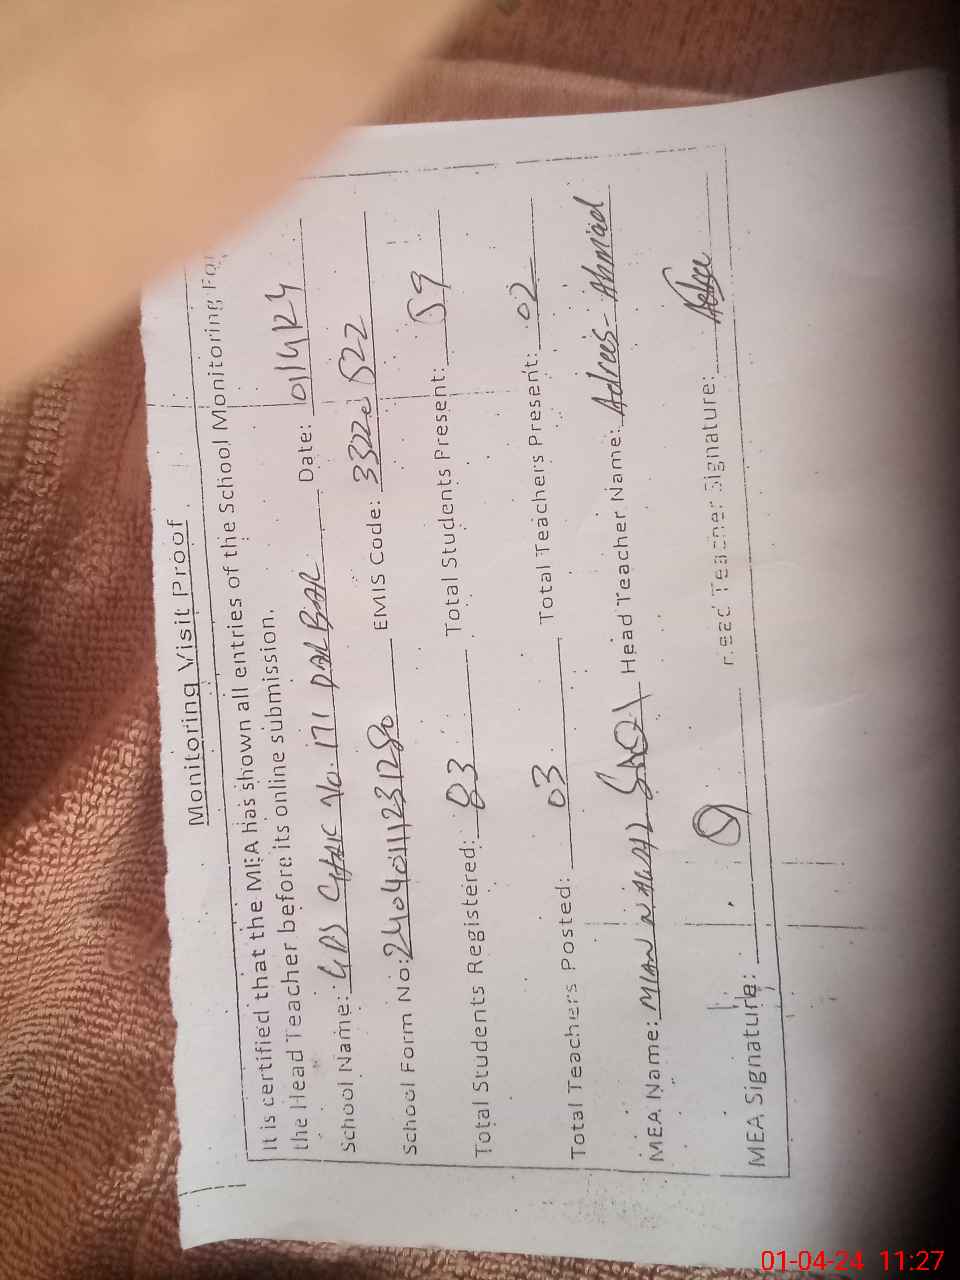 Monitoring Visit Proof
It is certified that the MEA has shown all entries of the School Monitoring For
the Head Teacher before its online submission.
School Name: GPS CHAK No. 171 DAL BAR Date: 01/4/24
School Form No: 24040111231280 EMIS Code: 3322 522
Total Students Registered: 83 Total Students Present: 59
Total Teachers Posted: 03 Total Teachers Present: 02
MEA Name: MIAN Head Teacher Name: Adrees Ahmad
MEA Signature: Head Teacher Signature:
01-04-24 11:27